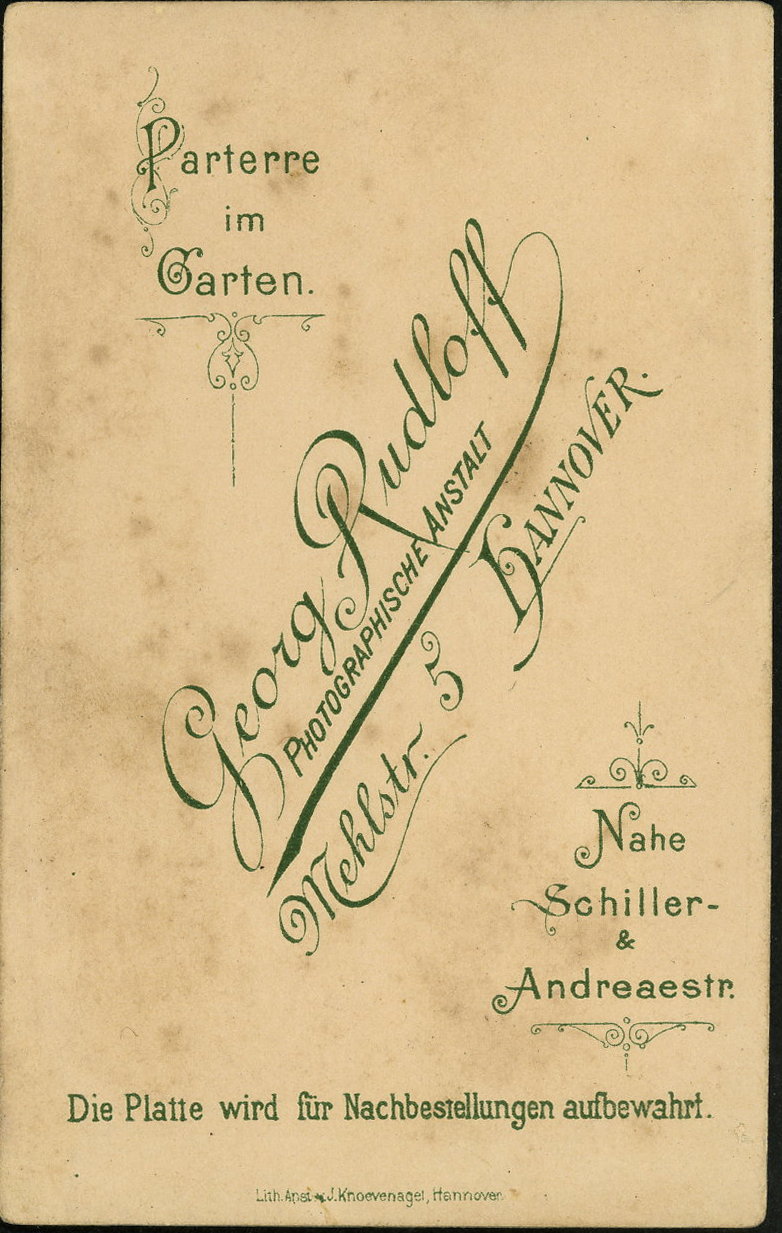 Parterre
im
Garten.
Georg Rudloff
PHOTOGRAPHISCHE ANSTALT
Mehlstr. 5 HANNOVER.
Nahe
Schiller-
&
Andreaestr.
Die Platte wird für Nachbestellungen aufbewahrt.
Lith. Anst. v. J. Knoevenagel, Hannover